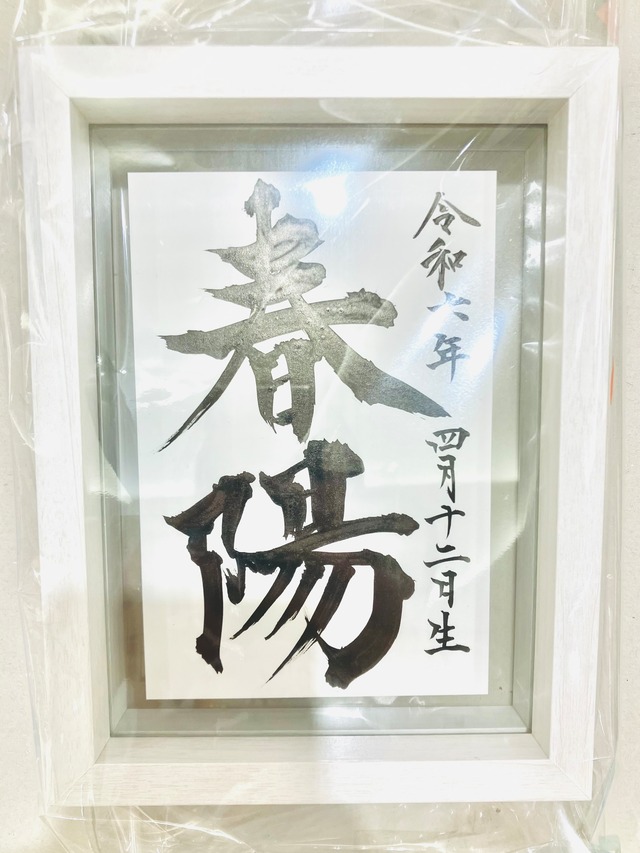 令和六年 四月十二日生
春陽